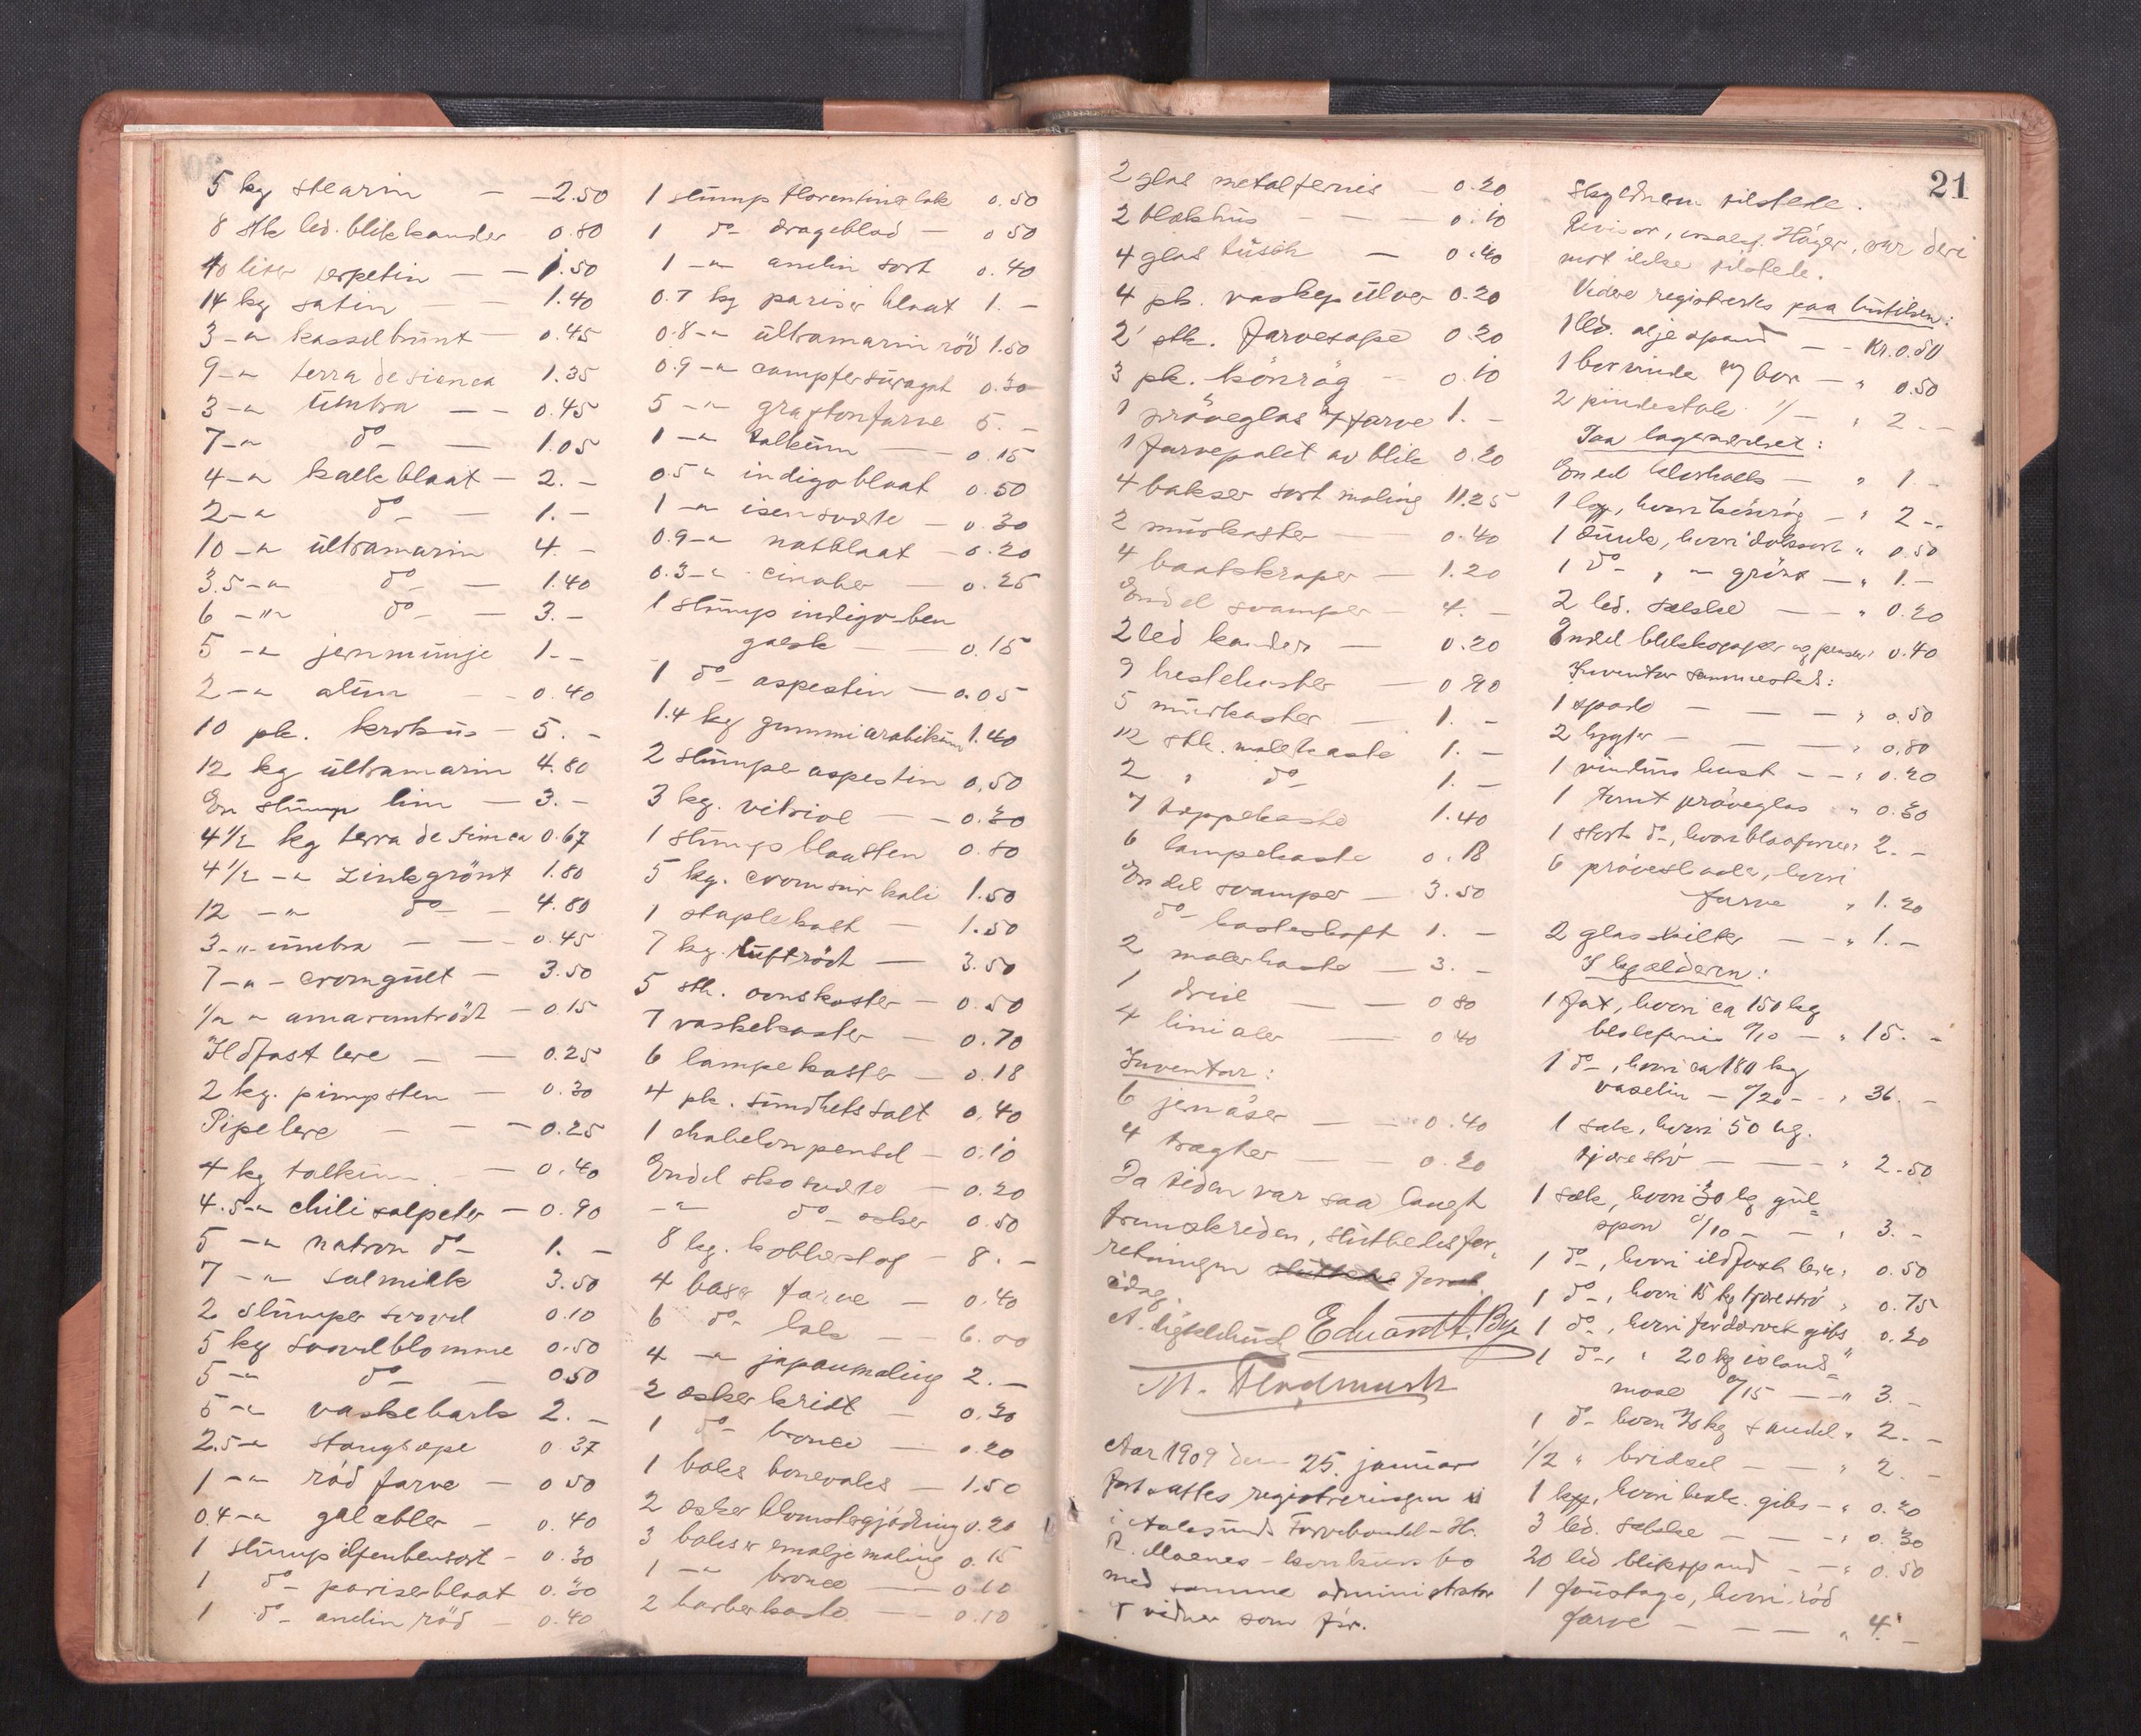 5 kg stearin — — 2.50
8 stk led. blikkander 0.80
10 liter terpetin — — 1.50
14 kg satin — — 1.40
3 -"- kasselbrunt — 0.45
9 -"- terra de sienea 1.35
3 -"- umbra — — 0.45
7 -"- do — 1.05
4 -"- kalkblaat — 2. –
2 -"- do — 1. –
10 -"- ultramarin 4. –
3.5 -"- do — 1.40
6 -"- do — 3. –
5 -"- jernmunje 1. –
2 -"- alun — — 0.40
10 pk. krokus — 5. –
12 kg ultramarin 4.80
En stump lim — 3. –
4 1/2 kg terra de simea 0.67
4 1/2 -"- Zinkgrønt 1.80
12 -"- do — 4.80
3 -"- umbra — — 0.45
7 -"- cromgult — 3.50
1/2 -"- amarantrødt — 0.15
Ildfast lere — — 0.25
2 kg. pimpsten — 0.30
Pipelere — — — 0.25
4 kg talkum — 0.40
4.5 -"- chilisalpeter — 0.90
5 -"- natron do 1. –
7 -"- salmiak 3.50
2 stumper svovl 0.10
5 kg svovlblomme 0.50
5 -"- do — 0.50
5 -"- vaskebark 2. –
2.5 -"- stangsape 0.37
1 -"- rød farve — 0.50
0.4 -"- galæbler — 0.40
1 stump elfenbensort — 0.30
1 do pariserblaat 0.30
1 do anelin rød — 0.40
1 stump florentinerlak 0.50
1 do drageblod — 0.50
1 -"- anelin sort 0.40
0.7 kg pariser blaat 1. –
0.8 -"- ultramarin rød 1.50
0.9 -"- 0.30
5 -"- graftonfarve 5. –
1 -"- talkum — 0.15
0.5 -"- indigoblaat 0.50
1 -"- isensverte — 0.30
0.9 -"- natblaat — 0.20
0.3 -"- cinober — 0.25
1 stump indigo-ben
galsk — — 0.15
1 do aspestin — 0.05
1.4 kg gummiarabikum 1.40
2 stumper aspestin 0.50
3 kg. vitriol — — 0.30
1 stump blaasten 0.80
5 kg. cromsur kali 1.50
1 stapel kalt — 1.50
7 kg. luftrødt — 3.50
5 stk. ovnskoster — 0.50
7 vaskekoster — 0.70
6 lampekoster — 0.18
4 pk. sundhetssalt 0.40
1 chabelonpensel — 0.10
Endel skosverte — 0.20
-"- do æsker 0.50
8 kg. kobberstof — 8. –
4 boks farve — 0.40
6 do lak — — 6.00
4 -"- japanmaling 2. –
2 æsker kridt — 0.30
1 do bronce — 0.20
1 boks bonevoks — 1.50
2 æsker blomstergjødning 0.20
3 bokser emaljemaling 0.15
1 -"- bronce — 0.10
2 barberkoste — — 0.10
21
2 glas metalfernis — 0.20
2 blækhus — — — 0.10
4 glas tusch — 0.40
4 pk. vaskepulver 0.20
2 stk. farvesape 0.20
3 pk. kønrøg — 0.10
1 prøveglas m/ farve 1. –
1 farvepalet av blik 0.20
4 bokser sort maling 11.25
2 murkoster — — 0.40
4 baatskraper — 1.20
Endel svamper — 4. –
2 led kander — 0.20
9 hestekoster — 0.90
5 murkoster — 1. –
12 stk. malekoste 1. –
2 " do 1. –
7 toppekoste 1.40
6 lampekoste 0.18
En del svamper — 3.50
do kosteskaft 1. –
2 malerkoste — 3. –
1 dril — — 0.80
4 linialer — 0.40
Inventar:
6 jernøser — — 0.40
4 tragter — — 0.20
Da tiden var saa langt
fremskreden, sluttedes for-
retningen
idag.
Eduard A. Bye
M. Flodmark
Aar 1909 den 25. januar
fortsattes registreringen i
i Aalesunds Farvehandel – H.
R. Moenes – konkursbo
med samme administrator
& vidner som før.
Skyldneren tilstede.
Revisor, Høyer, var deri
mot ikke tilstede.
Videre registrertes paa butiken:
1 led. oljespand — — Kr. 0.50
1 borvinde m/ bor — " 0.50
2 pindestole 1/– " 2. –
Paa lagerværelset:
En del — " 1. –
1 kgg, hvori kønrøg — " 2. –
1 dunk, hvori " 0.50
1 do " – grønt — " 1. –
2 led. sekke — — " 0.20
Endel blikkopper og " 0.40
Inventar sammesteds:
1 spade — — — " 0.50
2 lygter — — — " 0.80
1 vinduskost — — " 0.20
1 tomt prøveglas " 0.30
1 stort do, hvori blaafarve " 2. –
6 prøveskaale, hvori
farve " 1.20
2 glasskilter — — " 1. –
I kjælderen:
1 fat, hvori ca 150 kg
a/10 — " 15. –
1 do, hvori ca 180 kg
vaselin — a/20 — " 36. –
1 sæk, hvori 50 kg.
— — " 2.50
1 sæk, hvori 30 kg gul-
spon a/10 — — " 3. –
1 do, hvori ildfast lere " 0.50
1 do, hvori 15 kg " 0.75
1 do, hvori fordærvet gibs " 0.20
1 do, " 20 kg island-
mose a/15 — — " 3. –
1 do hvori 30 kg sandel " 2. –
1/2 " bridsel — — " 2. –
1 kgg, hvori gibs — " 0.20
3 led. sekke — — " 0.30
20 led blikspand — — " 0.50
1 foustage, hvori rød
farve — — — " 4. –